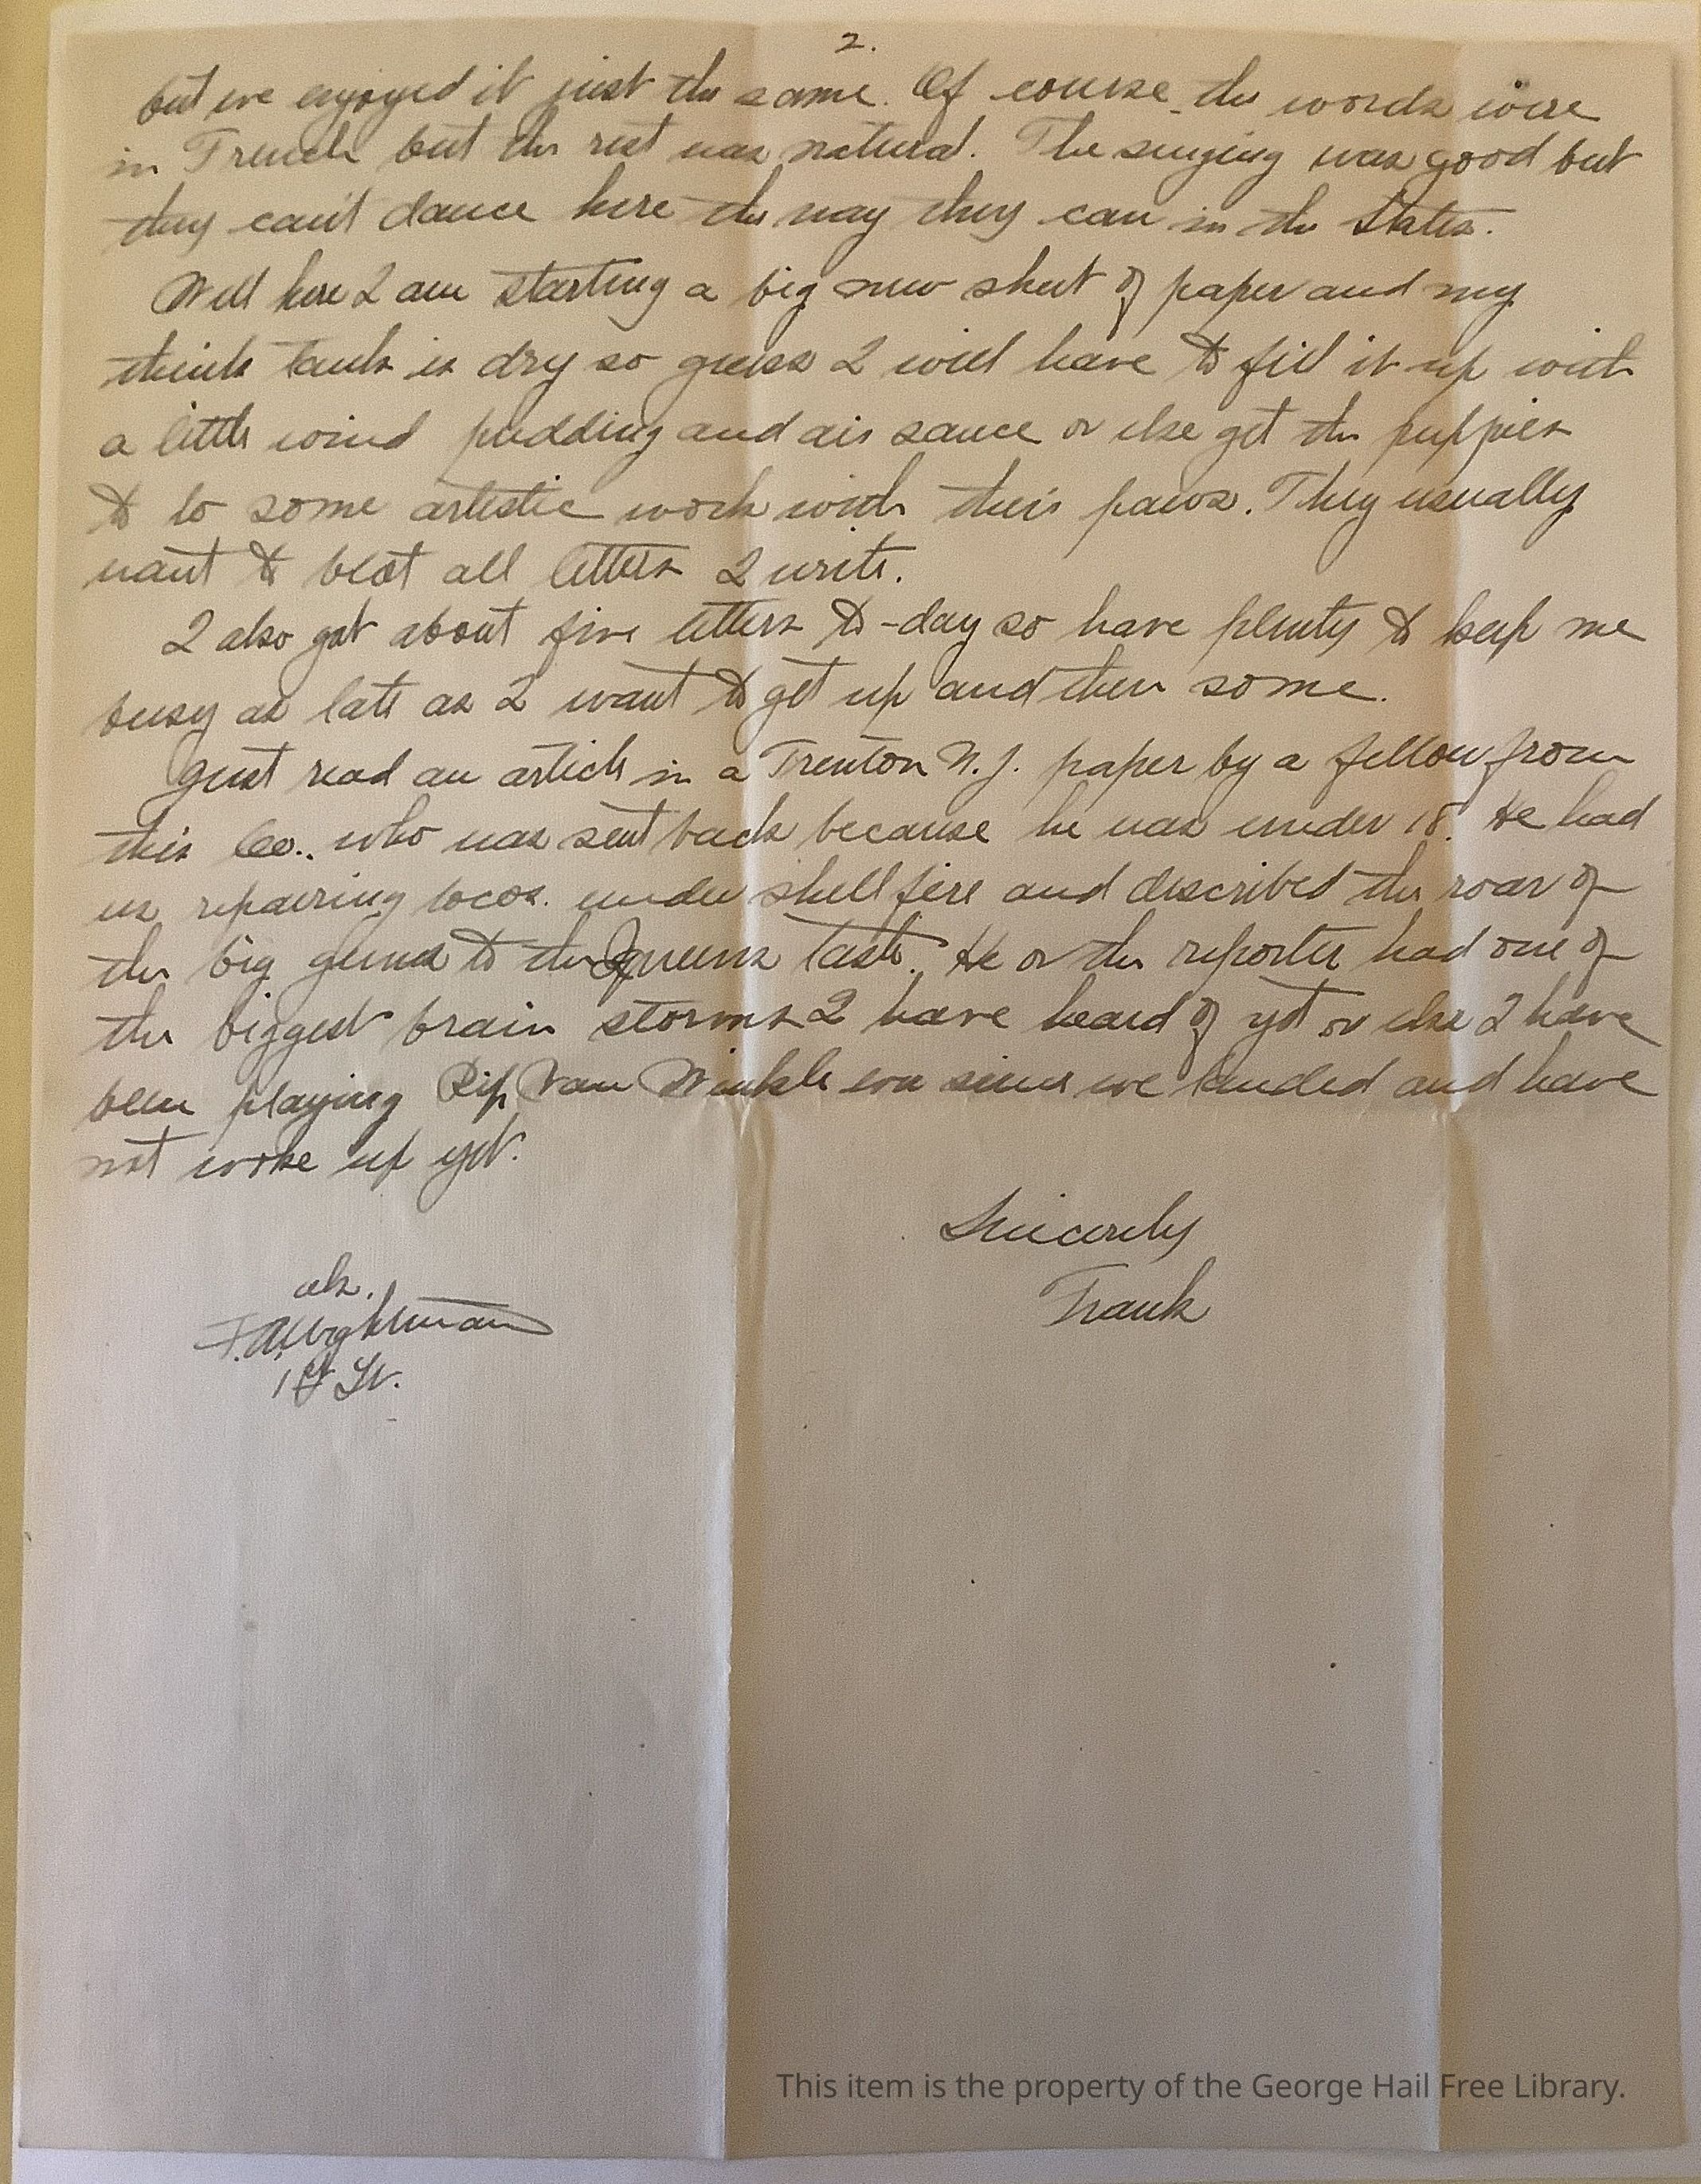 2.
but we enjoyed it just the same. Of course the words were
in French but the rest was natural. The singing was good but
they can't dance here the way they can in the States.
Well here I am starting a big new sheet of paper and my
think tank is dry so guess I will have to fill it up with
a little wind pudding and air sauce or else get the puppies
to to some artistic work with their paws. They usually
want to blot all letters I write.
I also got about five letters to-day so have plenty to keep me
busy as late as I want to get up and then some.
Just read an article in a Trenton N.J. paper by a fellow from
this Co. who was sent back because he was under 18. He had
us repairing locos. under shell fire and described the roar of
the big guns to the Queens taste. He or the reporter had one of
the biggest brain storms I have heard of yet or else I have
been playing Rip Van Winkle ever since we landed and have
not woke up yet.
Sincerely
Frank
ok.
F.A. Wightman
1st Lt.
This item is the property of the George Hail Free Library.